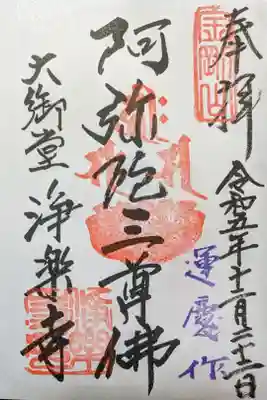 奉拝
令和五年十二月二十二日
運慶作
阿弥陀三尊佛
大御堂
浄楽寺